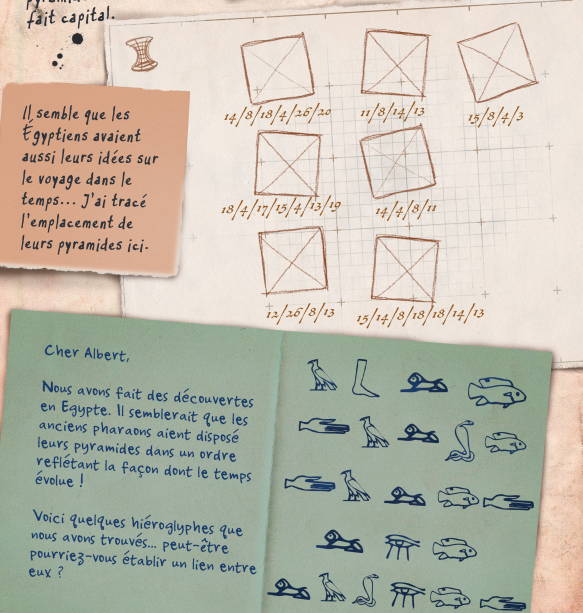 fait capital.
14/8/18/4/26/20 11/8/14/13 15/8/4/3
Il semble que les
Égyptiens avaient
aussi leurs idées sur
le voyage dans le
temps... J'ai tracé
l'emplacement de
leurs pyramides ici.
18/4/17/15/4/13/19 14/4/8/11
12/26/8/13 15/14/8/18/18/14/13
Cher Albert,
Nous avons fait des découvertes
en Egypte. Il semblerait que les
anciens pharaons aient disposé
leurs pyramides dans un ordre
reflétant la façon dont le temps
évolue !
Voici quelques hiéroglyphes que
nous avons trouvés... peut-être
pourriez-vous établir un lien entre
eux ?